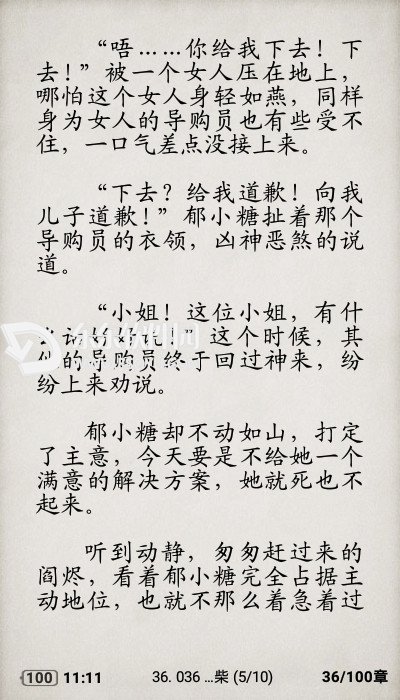 “唔……你给我下去！下
去！”被一个女人压在地上，
哪怕这个女人身轻如燕，同样
身为女人的导购员也有些受不
住，一口气差点没接上来。
“下去？给我道歉！向我
儿子道歉！”郁小糖扯着那个
导购员的衣领，凶神恶煞的说
道。
“小姐！这位小姐，有什
这个时候，其
他的导购员终于回过神来，纷
纷上来劝说。
郁小糖却不动如山，打定
了主意，今天要是不给她一个
满意的解决方案，她就死也不
起来。
听到动静，匆匆赶过来的
阎烬，看着郁小糖完全占据主
动地位，也就不那么着急着过
100 11:11 36. 036 ...柴 (5/10) 36/100章